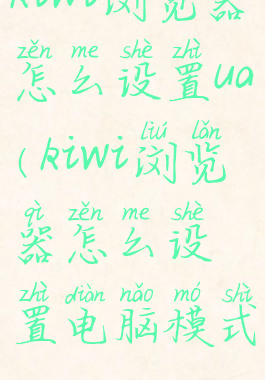 kiwi浏览器
zěn me shè zhì
怎么设置ua
liú lǎn
(kiwi浏览
qì zěn me shè
器怎么设
zhì diàn nǎo mó shì
置电脑模式